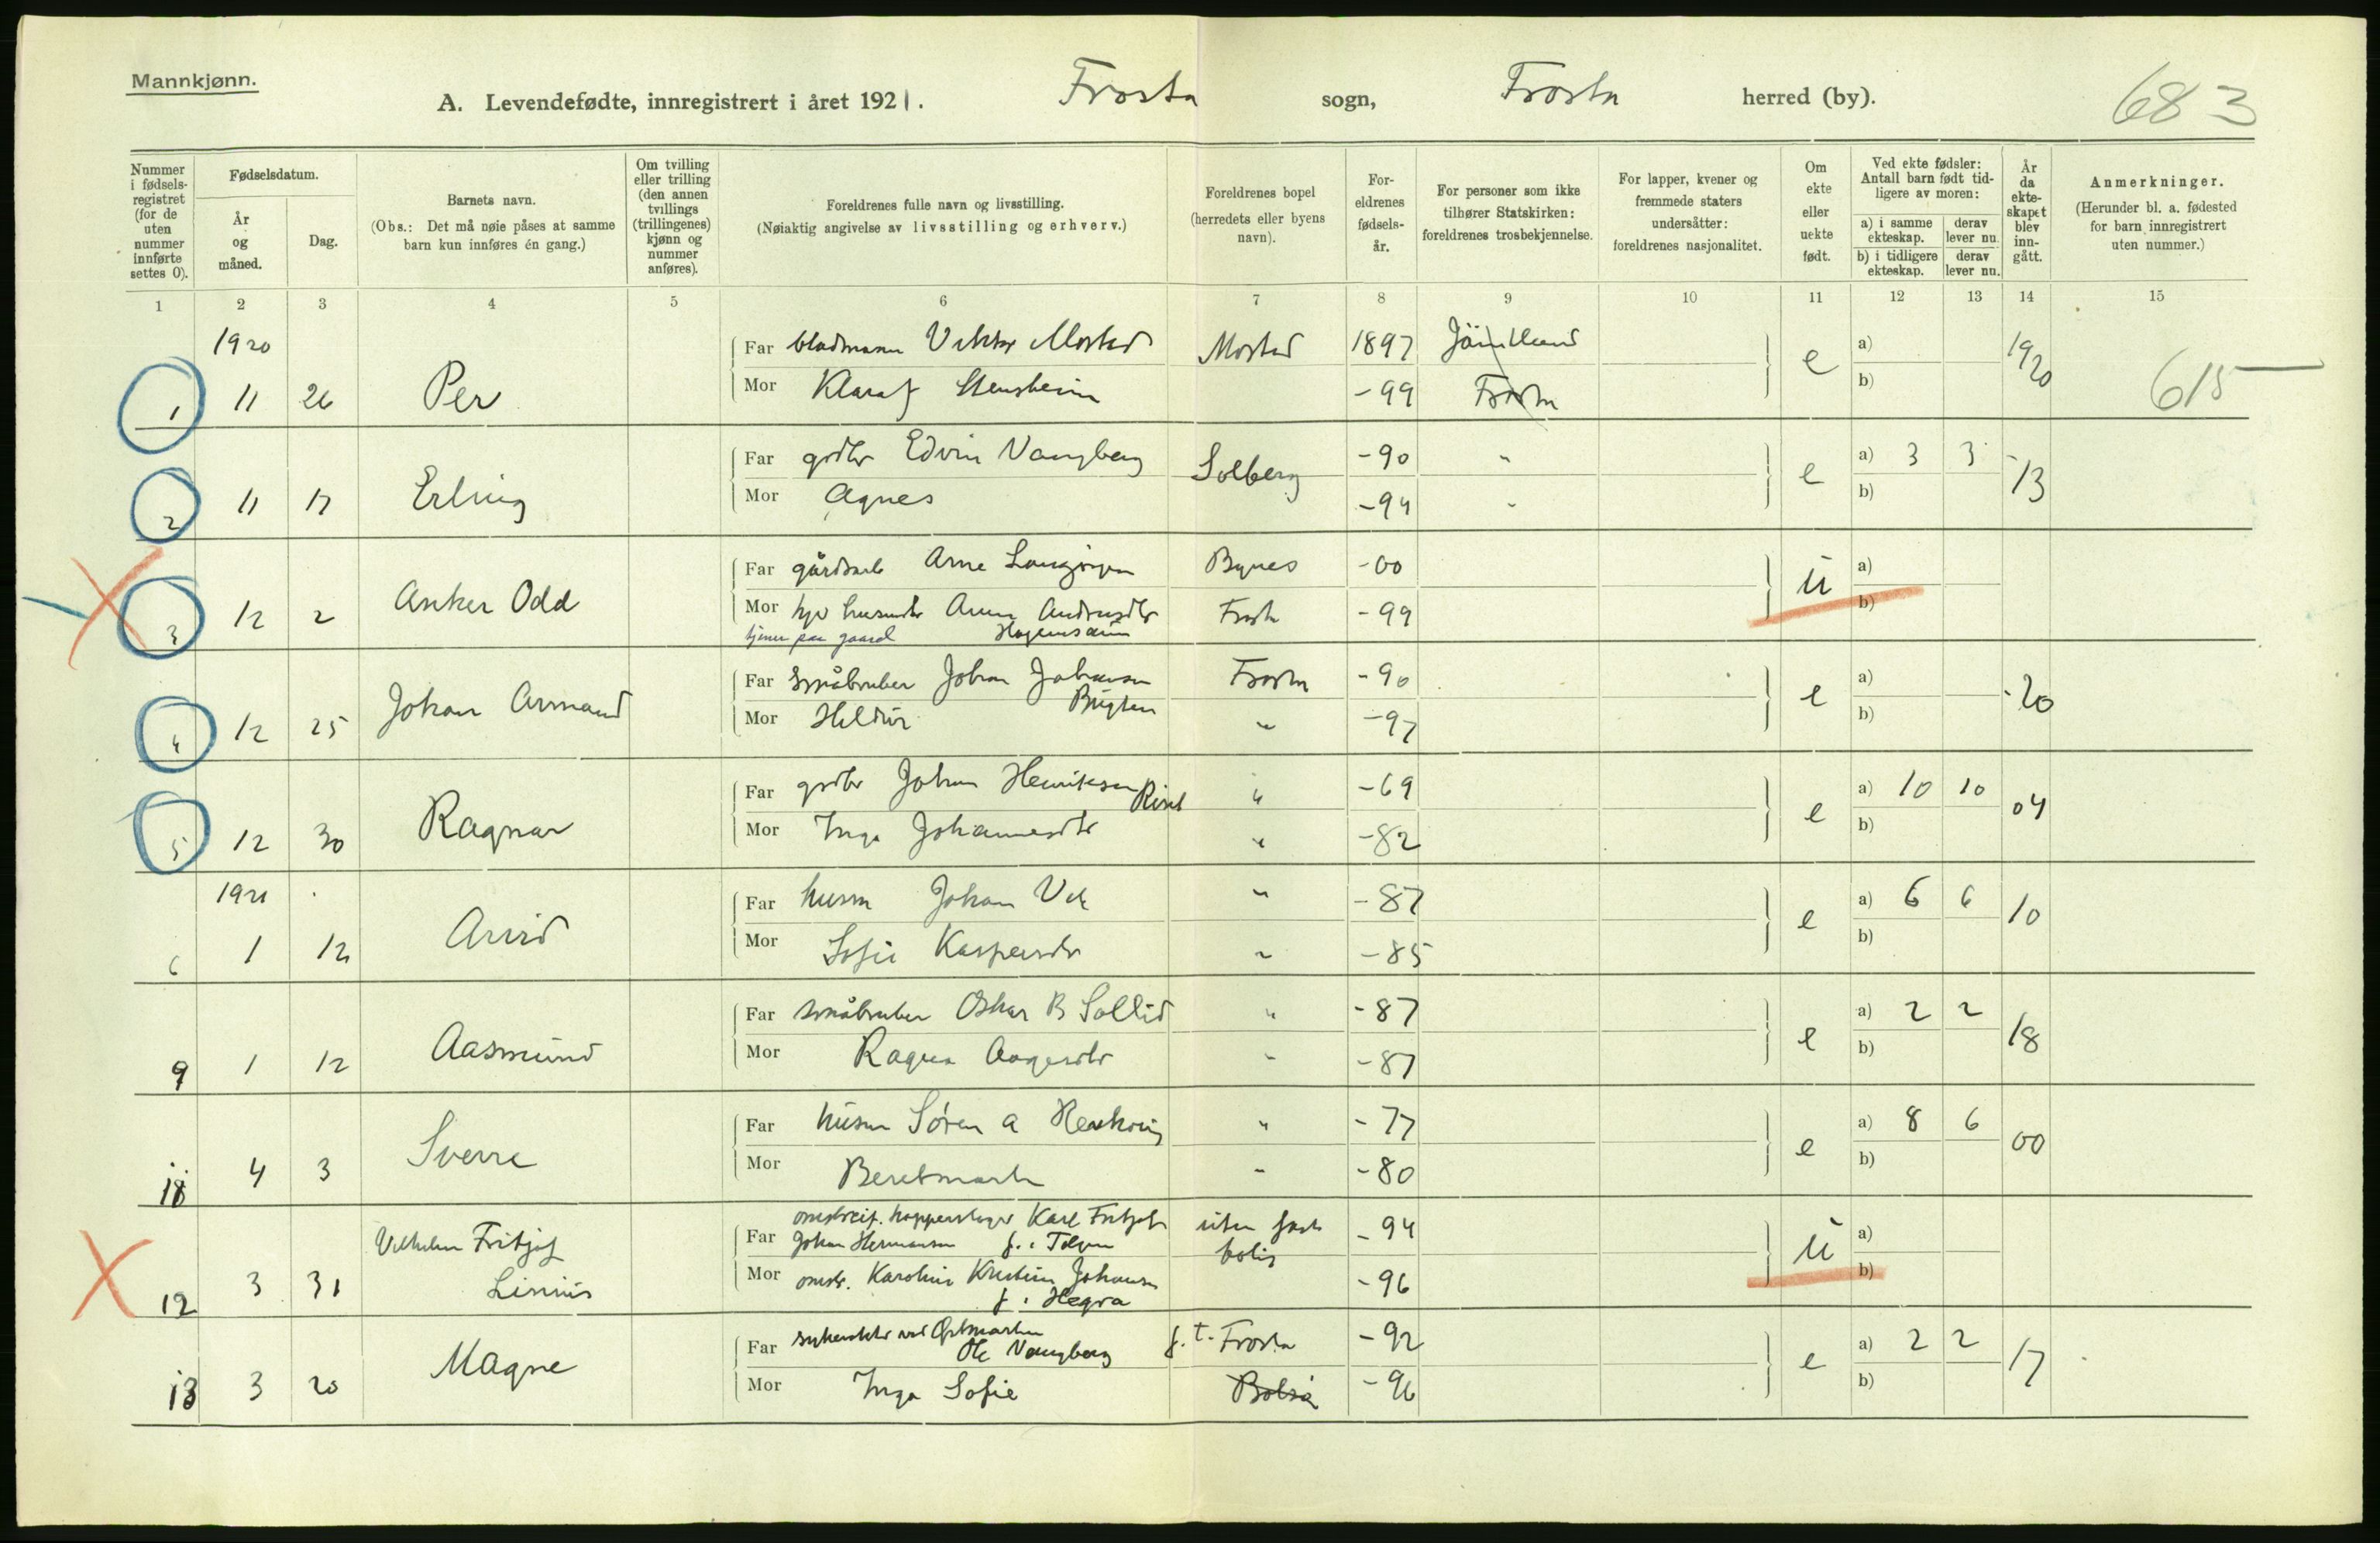 Mannkjønn.
A. Levendefødte, innregistrert i året 1921. Frosta sogn, Frosta herred (by). 683
Nummer i fødsels-registret (for de uten nummer innførte settes 0).
Fødselsdatum.
År og måned.
Dag.
Barnets navn.
(Obs.: Det må nøie påses at samme barn kun innføres én gang.)
Om tvilling eller trilling (den annen tvillings (trillingenes) kjønn og nummer anføres).
Foreldrenes fulle navn og livsstilling.
(Nøiaktig angivelse av livsstilling og erhverv.)
Foreldrenes bopel (herredets eller byens navn).
For-eldrenes fødsels-år.
For personer som ikke tilhører Statskirken: foreldrenes trosbekjennelse.
For lapper, kvener og fremmede staters undersåtter: foreldrenes nasjonalitet.
Om ekte eller uekte født.
Ved ekte fødsler: Antall barn født tid-ligere av moren:
a) i samme ekteskap. derav lever nu.
b) i tidligere ekteskap. derav lever nu.
År da ekte-skapet blev inn-gått.
Anmerkninger.
(Herunder bl. a. fødested for barn innregistrert uten nummer.)
1 2 3 4 5 6 7 8 9 10 11 12 13 14 15
1920 Far Viktor Mostad Mostad 1897 Jämtland e a) 1920
1 11 26 Per Mor Klara Stensheim -99 Frosta b) 615
Far grdbr Edvin Vangberg Solberg -90 " e a) 3 3 -13
2 11 17 Erling Mor Agnes -94 " b)
Far gårdsarb Arne Bynes -00 u a)
3 12 2 Anker Odd Mor Anna Andersdtr Frosta -99 b)
tjener paa gaard
Far Småbruker Johan Johansen Frosta -90 e a) -20
4 12 25 Johan Armand Mor Hildur " -97 b)
Far grdbr Johan Henriksen Riset " -69 e a) 10 10 04
5 12 30 Ragnar Mor Inga Johannesdtr " -82 b)
1921 Far husm Johan Vik " -87 e a) 6 6 10
6 1 12 Arvid Mor Sofie Kaspersdtr " -85 b)
Far småbruker Oskar B Sollid " -87 e a) 2 2 18
9 1 12 Aasmund Mor Ragna Aagesdtr " -87 b)
Far husm Søren A " -77 e a) 8 6 00
18 4 3 Sverre Mor Beretmarta " -80 b)
omstreif. kopperslager Karl Fritjof
Vilhelm Fritjof Far Johan Hermansen f. i uten fast bolig -94 u a)
12 3 31 Linius Mor omstr. Karoline Kristine Johansen -96 b)
f. i Hegra
Far Ole Vangberg f. t. Frosta -92 e a) 2 2 17
13 3 20 Magne Mor Inga Sofie -96 b)